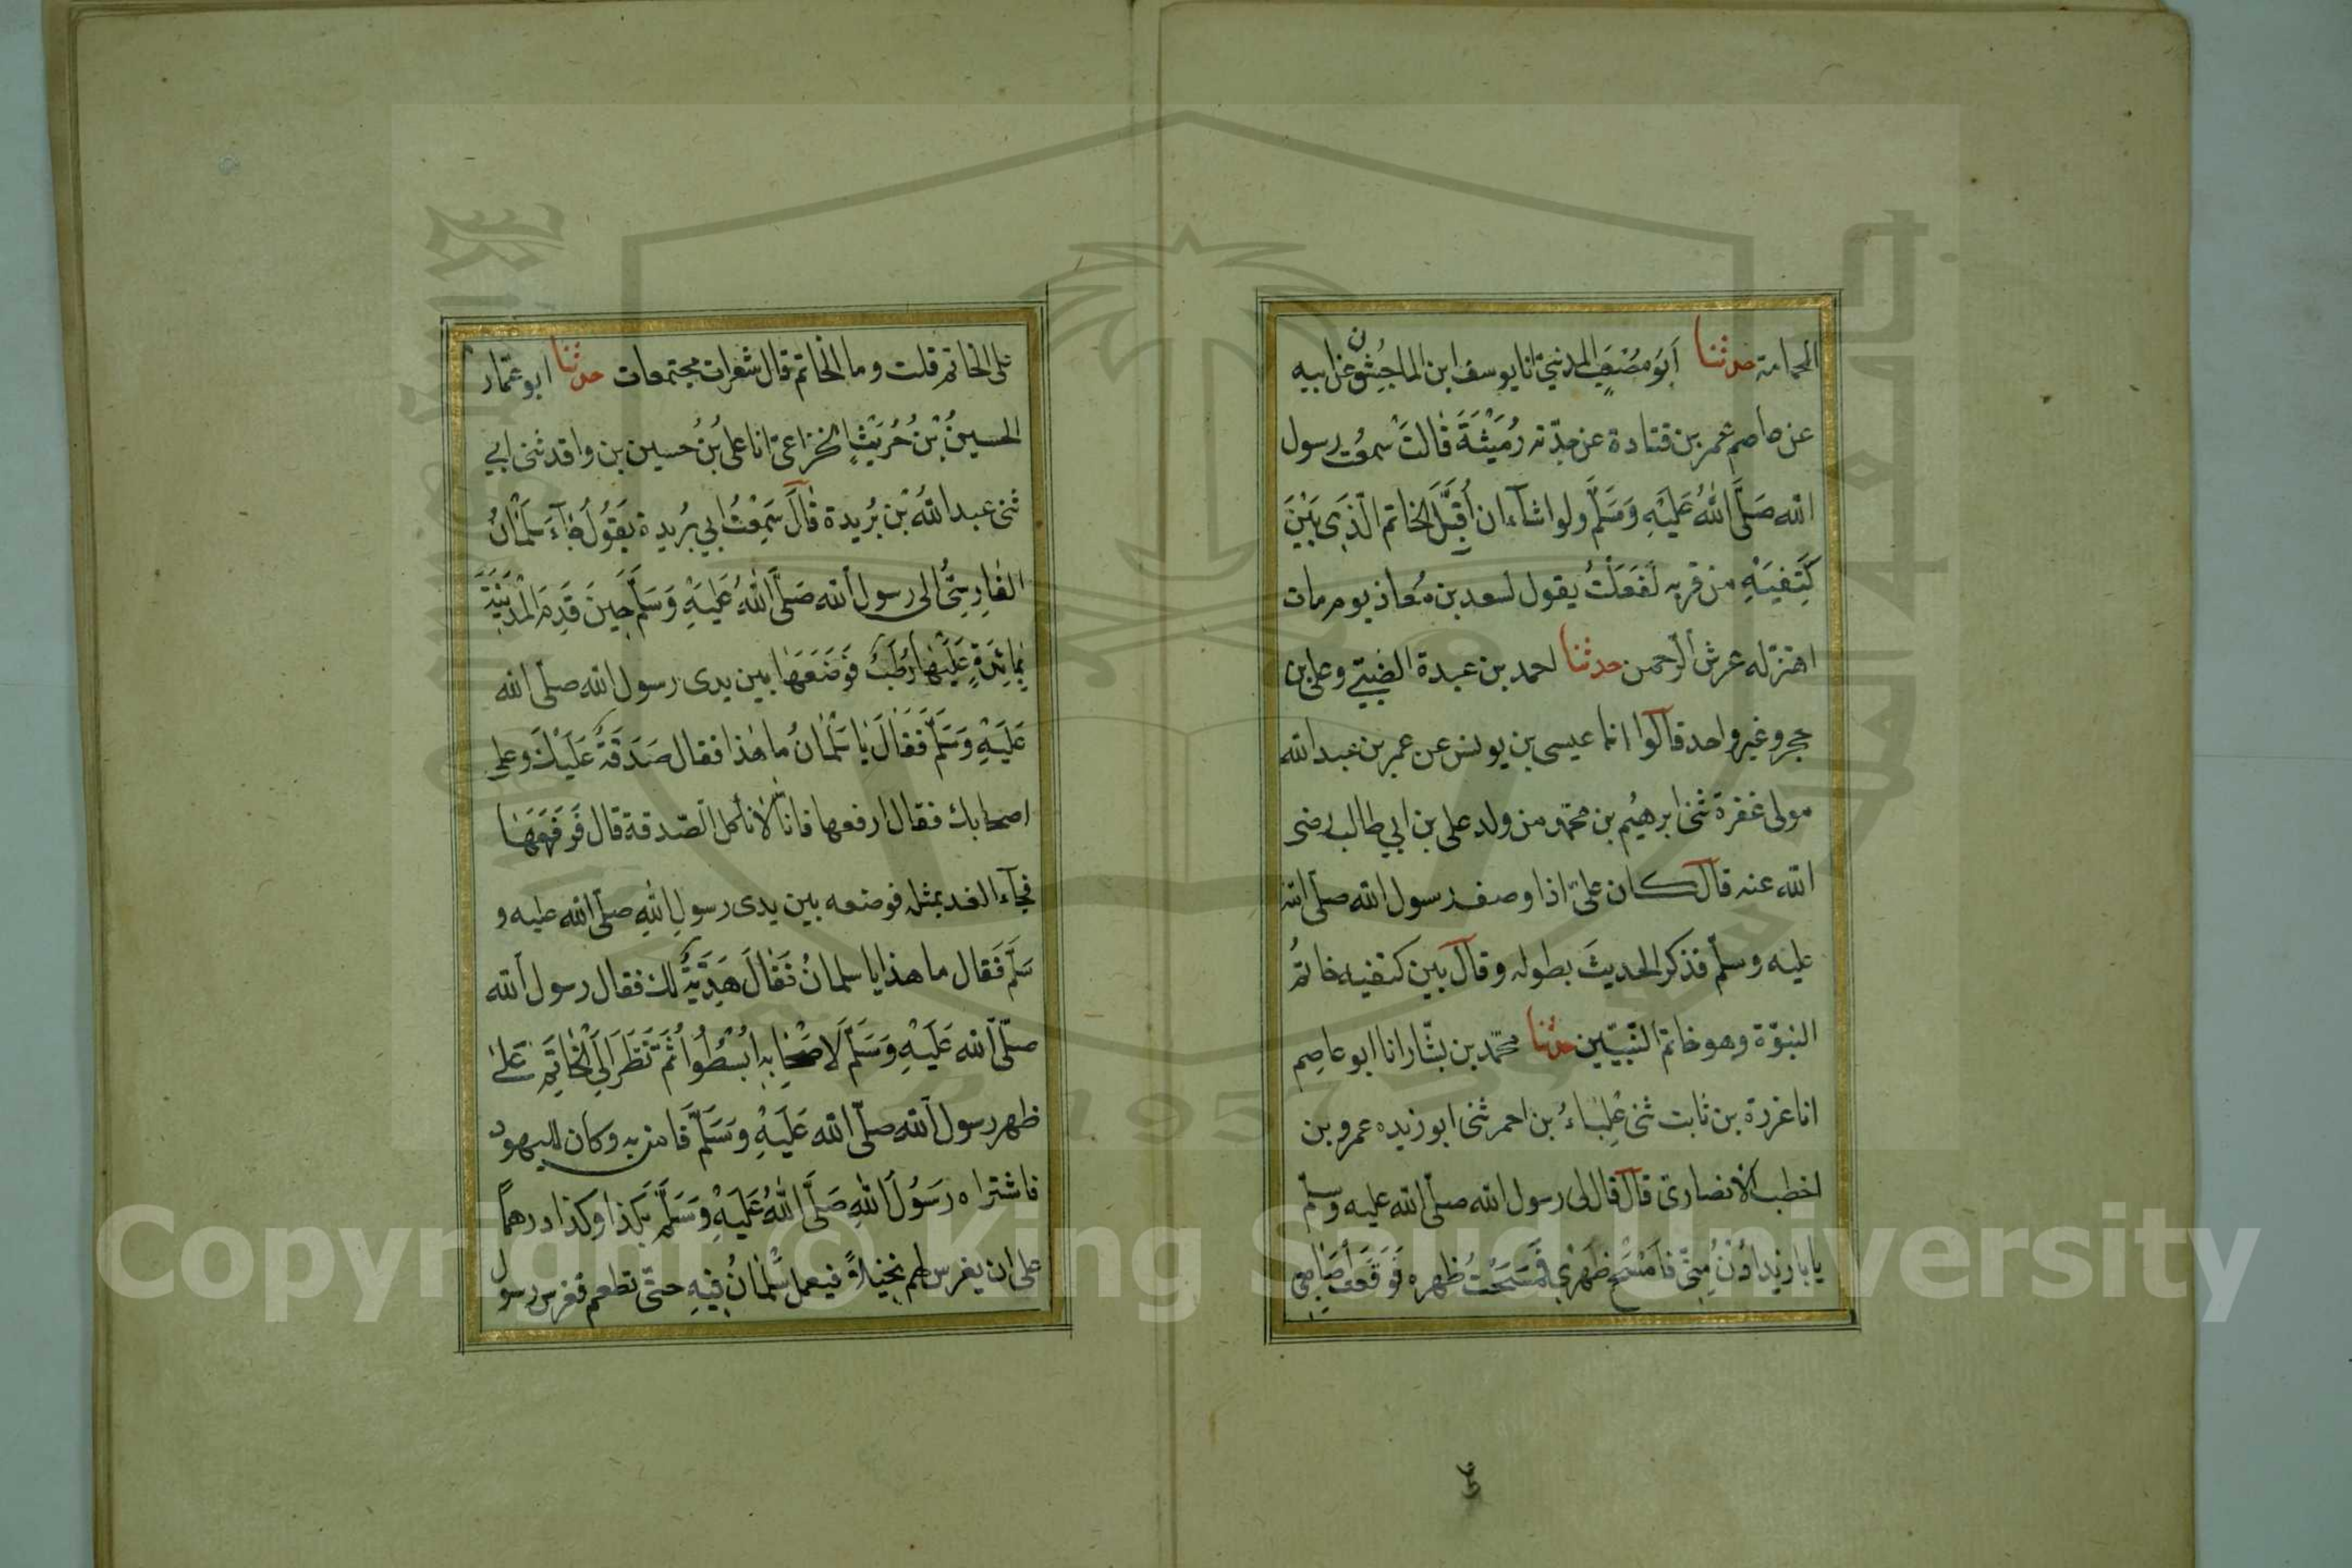 الحمامة حدثنا أبو مُصْعَبٍ المدنيّ انا يوسف ابن الماجِشُون عن ابيه
عن عاصم عمر بن قتادة عن جدّته رُمَيْثَةَ قالتْ سمعْت رسول
الله صَلَّى اللهُ عَلَيْهِ وَسَلَّم ولو اشآء ان أُقَبِّلَ الخاتم الّذِي بَيْنَ
كَتِفَيْهِ من قربه لَفَعَلْتُ يقول لسعد بن مُعاذ يوم مات
اهتزّ له عرش الرّحمن حدثنا احمد بن عبدة الضّبّيّ وعلى بن
حجر وغير واحد قالوا انا عيسى بن يونس عن عمر بن عبد الله
مولى غفرة ثنى ابرهيم بن محمّد من ولد على بن ابي طالب رضى
الله عنه قال كان علىّ اذا وصف رسول الله صلّى الله
عليه وسلّم فذكر الحديثَ بطوله وقال بين كتفيه خاتمُ
النبوّة وهو خاتم النّبيّين حدثنا محمّد بن بشّار انا ابو عاصِم
انا عزرة بن ثابت ثنى عِلْبَاءُ بن احمر ثنى ابو زيد عمرو بن
اخطب الانصاريّ قال قال لى رسول الله صلّى الله عليه وسلّم
يابا زيد اُدْنُ مِنّي فَامْسَحْ ظَهْرِي فَمَسَحْتُ ظهره فَوَقَعَتْ أَصَابِعِي
على الخاتم قلت وما الخاتم قال شعرات مجتمعات حدثنا ابو عمّار
الحسينُ بْنُ حُرَيْثٍ الخزاعىّ انا على بْنُ حُسين بن واقد ثنى ابي
ثنى عبد اللهِ بْنِ بُريدة قالَ سَمِعْتُ ابي بُريدة يَقُولُ جَآءَ سَلْمَانُ
الفارِسِىُّ الى رسول الله صَلَّى اللهُ عَلَيْهِ وَسَلَّم حِينَ قَدِمَ الْمَدِينَةَ
بِمَائِدَةٍ عَلَيْهَا رُطَبٌ فَوَضَعَهَا بين يدى رسول الله صلّى الله
عَلَيْهِ وَسَلَّمَ فَقَالَ يَا سَلْمَانُ ما هٰذا فقال صَدَقَةٌ عَلَيْكَ وعلى
اصحابك فقال ارفعها فانّا لا نأكل الصّدقة قال فَرَفَعَهَا
فجآء الغد بمثله فوضعه بين يدى رسولِ اللهِ صلّى الله عليه و
سَلَّم فَقال ما هذا يا سلمانُ فَقَالَ هَدِيَّةٌ لك فقال رسول الله
صلّى الله عَلَيْهِ وَسَلَّم لاَصْحَابِهِ اُبْسُطُوا ثُمَّ نَظَرَ اِلَى الْخَاتَمِ عَلَى
ظهر رسول الله صلّى الله عَلَيْهِ وَسَلَّم فَامن به وكان لليهود
فاشتراه رَسُولُ اللهِ صَلَّى اللهُ عَلَيْهِ وَسَلَّم بكذا وكذا درهماً
على ان يغرس لهم نخيلاً فيعمل سَلْمَانُ فِيهِ حتّى تطعم فغرس رسول
Copyright © King Saud University
1957